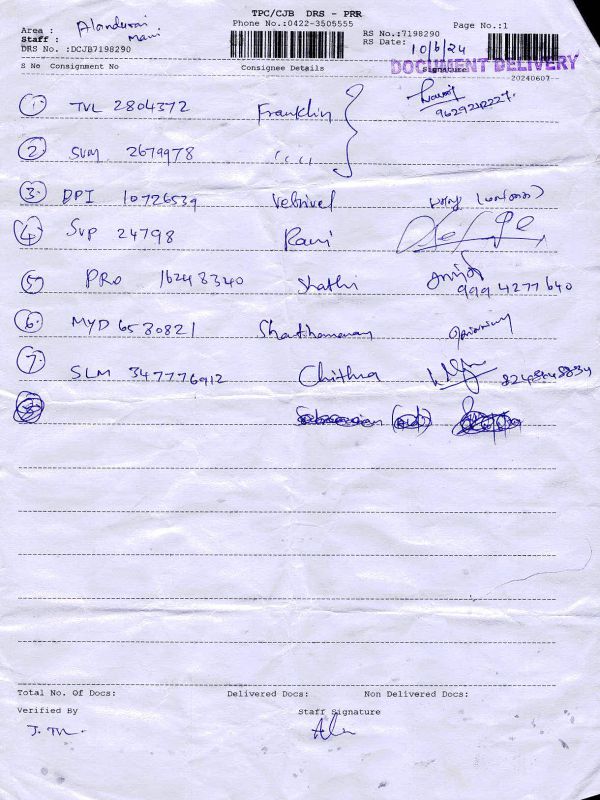 TPC/CJB DRS - PRR
Phone No.:0422-3505555
Page No.:1
Area : Alandurai
Staff : Mani
DRS No. :DCJB7198290
RS No.:7198290
RS Date: 10/6/24
DOCUMENT DELIVERY
20240607
S No Consignment No Consignee Details Signature
1. TVL 2804372 Franklin 9629212227
2. SVM 2679978 ,, ,,
3. DPI 10726539 Vetrivel
4. SVP 24798 Ravi
5. PRO 16248340 Shathi 9994277640
6. MYD 6580821
7. SLM 347776912 Chithra
Total No. Of Docs: Delivered Docs: Non Delivered Docs:
Verified By Staff Signature